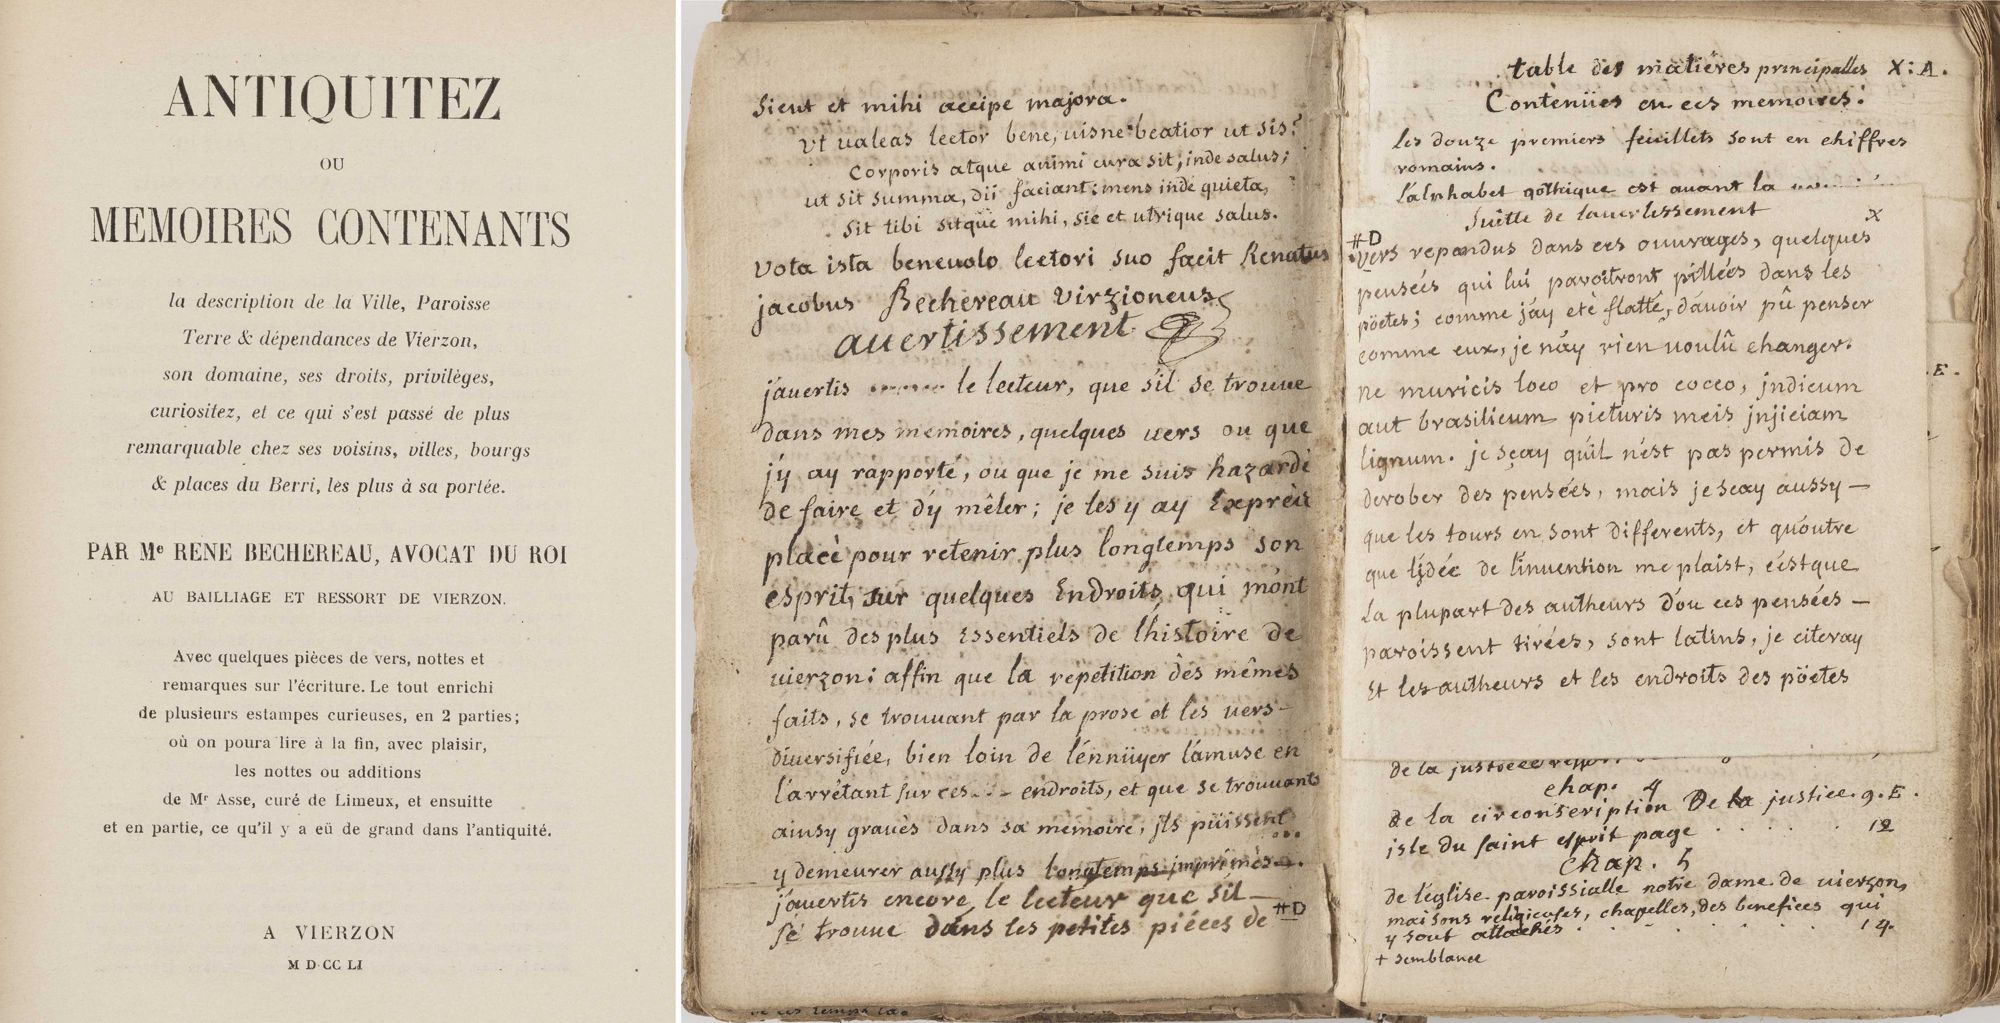 ANTIQUITEZ
OU
MEMOIRES CONTENANTS
la description de la Ville, Paroisse
Terre & dépendances de Vierzon,
son domaine, ses droits, privilèges,
curiositez, et ce qui s'est passé de plus
remarquable chez ses voisins, villes, bourgs
& places du Berri, les plus à sa portée.
PAR Me RENE BECHEREAU, AVOCAT DU ROI
AU BAILLIAGE ET RESSORT DE VIERZON.
Avec quelques pièces de vers, nottes et
remarques sur l'écriture. Le tout enrichi
de plusieurs estampes curieuses, en 2 parties;
où on poura lire à la fin, avec plaisir,
les nottes ou additions
de Mr Asse, curé de Limeux, et ensuitte
et en partie, ce qu'il y a eü de grand dans l'antiquité.
A VIERZON
M D CC LI
sient et mihi accipe majora.
Vt ualeas lector bene, uisne beatior ut sis?
Corporis atque animi cura sit, inde salus;
ut sit summa, dii faciant: mens inde quieta,
sit tibi sitque mihi, sic et utrique salus.
Vota ista beneuolo lectori suo facit Renatus
jacobus Bechereau Virzioneus
auertissement
j'auertis le lecteur, que s'il se trouue
dans mes memoires, quelques uers ou que
j'y ay rapporté, ou que je me suis hazardé
de faire et d'y mêler; je les y ay Exprèis
placè pour retenir plus longtemps son
esprit, sur quelques Endroits qui m'ont
parû des plus Essentiels de l'histoire de
uierzon: affin que la repetition des mêmes
faits, se trouuant par la prose et les uers-
diuersifiée, bien loin de l'ennüyer l'amuse en
l'arrêtant sur ces endroits, et que se trouuants
ainsy grauès dans sa memoire, jls püissent
y demeurer aussy plus longtemps imprimès.
j'auertis encore le lecteur que s'il
se trouue dans les petites piéces de #D
table des matiéres principalles X: A.
Contenües en ces memoires:
les douze premiers feuillets sont en chiffres
romains.
L'alphabet gothique est auant la
Suitte de l'auertissement X
#D
vers repandus dans ces ouurages, quelques
penseés qui lui paroitront pilleés dans les
pöetes; comme j'ay eté flatté, d'auoir pû penser
comme eux, je n'ay rien uoulû changer.
ne muricis loco et pro cocco, jndicum
aut brasilicum picturis meis jnjiciam
lignum. je sçay qu'il n'est pas permis de
derober des pensées, mais je scay aussy-
que les tours en sont differents, et qu'outre
que l'idée de l'inuention me plaist, c'est que
la plupart des autheurs d'ou ces pensées-
paroissent tirées, sont latins, je citeray
et les autheurs et les endroits des pöetes
E.
de la justice
chap. 4
de la circonscription De la justice. 9. E.
isle du saint esprit page 12
chap. 5
de l'eglise paroissialle notre dame de uierzon,
maisons religieuses, chapelles, des benefices qui
y sont attachés 14.
+ semblance